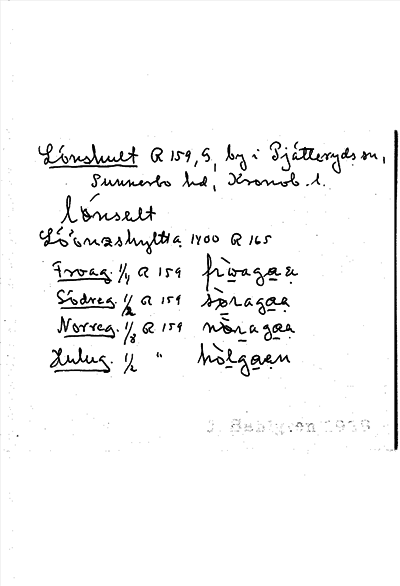 Lönshult R 159, G, by i Pjätteryds sn,
Sunnerbo hd, Kronob. l.
lónselt
Lö́onæshyltta 1400 R 165
Froag. 1/4 R 159 fròagaa
Södreg. 1/2 R 159 sòragaa
Norreg. 1/8 R 159 nòragaa
Hulug. 1/2 " hòlgaen